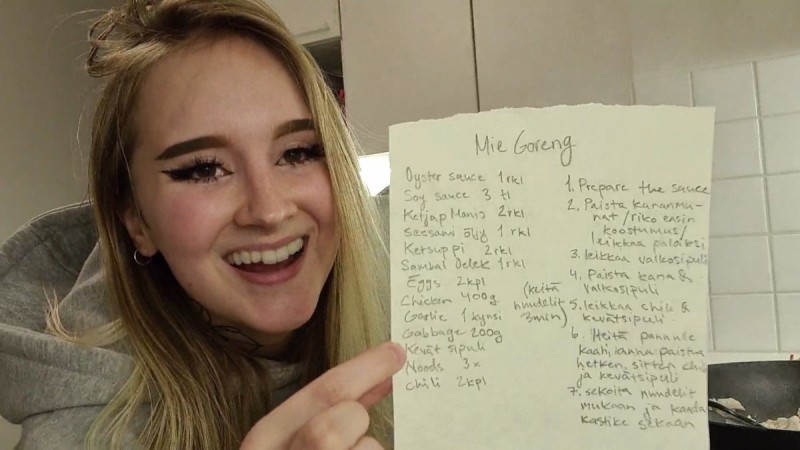 Mie Goreng
Oyster sauce 1 rkl
Soy sauce 3 tl
Ketjap Manis 2 rkl
Seesami öljy 1 rkl
Ketsuppi 2 rkl
Sambal Oelek 1 rkl
Eggs 2 kpl
Chicken 400g
Garlic 1 kynsi
Cabbage 200g
Kevät sipuli
Noods 3x
Chili 2 kpl
(keitä
nuudelit
3min)
1. Prepare the sauce
2. Paista kananmu-
nat/riko ensin
koostumus/
leikkaa paloiksi
3. leikkaa valkosipuli
4. Paista kana &
valkosipuli
5. leikkaa chili &
kevätsipuli
6. Heitä pannulle
kaali, anna paistua
hetken, sitten chili
ja kevätsipuli
7. sekoita nuudelit
mukaan ja kaada
kastike sekaan